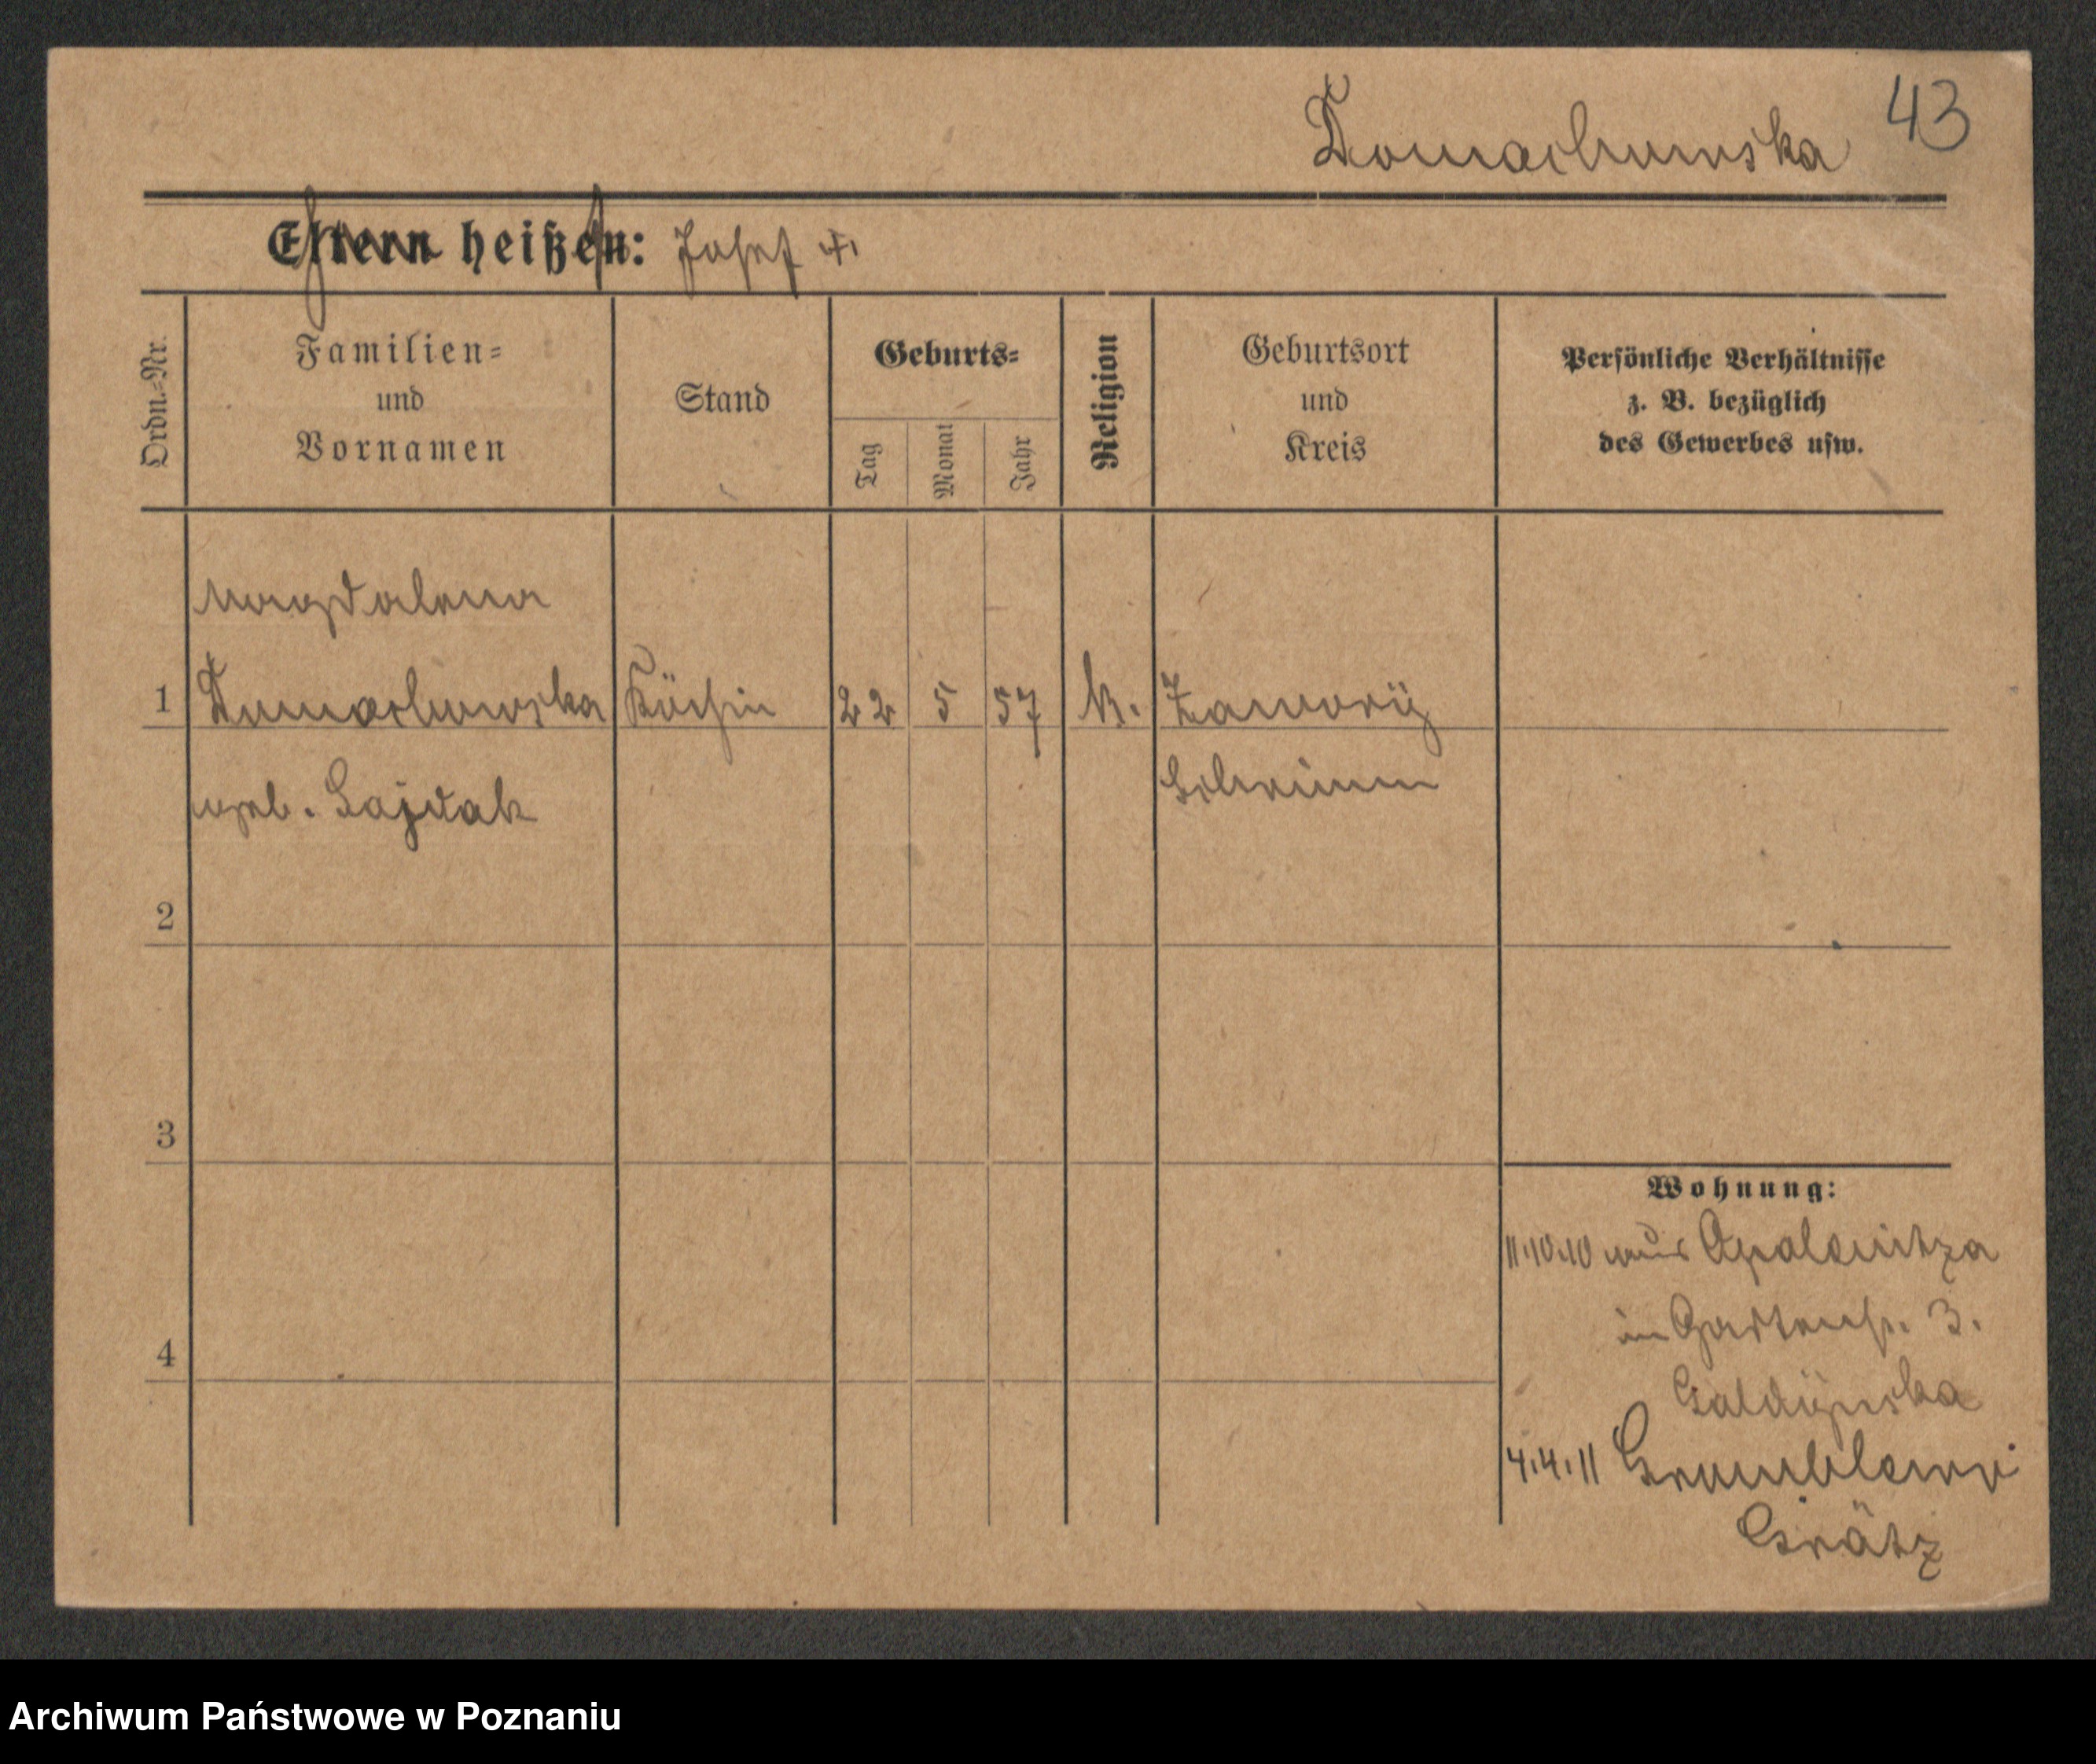 Domachowska 43
Eltern heißen: Josef †
Ordn.=Nr.
Familien=
und
Vornamen
Stand
Geburts=
Tag
Monat
Jahr
Religion
Geburtsort
und
Kreis
Persönliche Verhältnisse
z. B. bezüglich
des Gewerbes usw.
Magdalena
1 Domachowska Köchin 22 5 57 k. Zaworÿ
geb. Gajdak Schrimm
2
3
4
Wohnung:
11.10.10 aus Opalenitza
in Gartenstr. 3.
4.4.11
Grätz
Archiwum Państwowe w Poznaniu